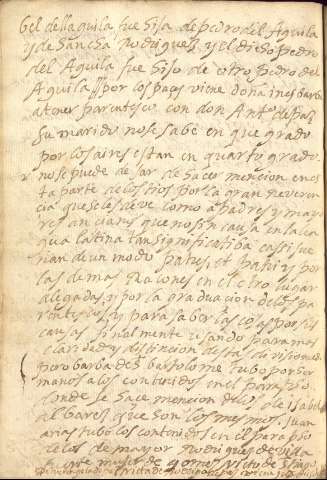 bel del aguila fue hija de pedro del Aguila
y de Sancha Rodriguez, y el dicho pedro
del Aguila fue hijo de otro pedro del
Aguila por los paçes viene doña ines barba
a tener parentesco con don Ant.º de paz
su marido no se sabe en que grado
por los aires estan en quarto grado
no se puede dejar de hacer mencion en es
ta parte de los tios por la gran reveren
cia que se les deve, como a padres y mayo
res ancianos que no sin causa en la len
gua latina tan significatiba cassi sue
nan de un modo patres, et patrui y por
las demas raçones en el otro lugar
alegadas, y por la graduacion de los pa
rentescos, y para saber las cosas por sus
causas finalmente usando para mas
claridad y distincion destas divisiones
pero barba de s bartolome tubo por her
manos a los contenidos en el parrapho
donde se hace mencion de los de isabel
albares que son los mesmos. Juan
arias tubo los contenidos en el parrapho
de los de mayor Rodriguez de villa
fuerte muger de gomez